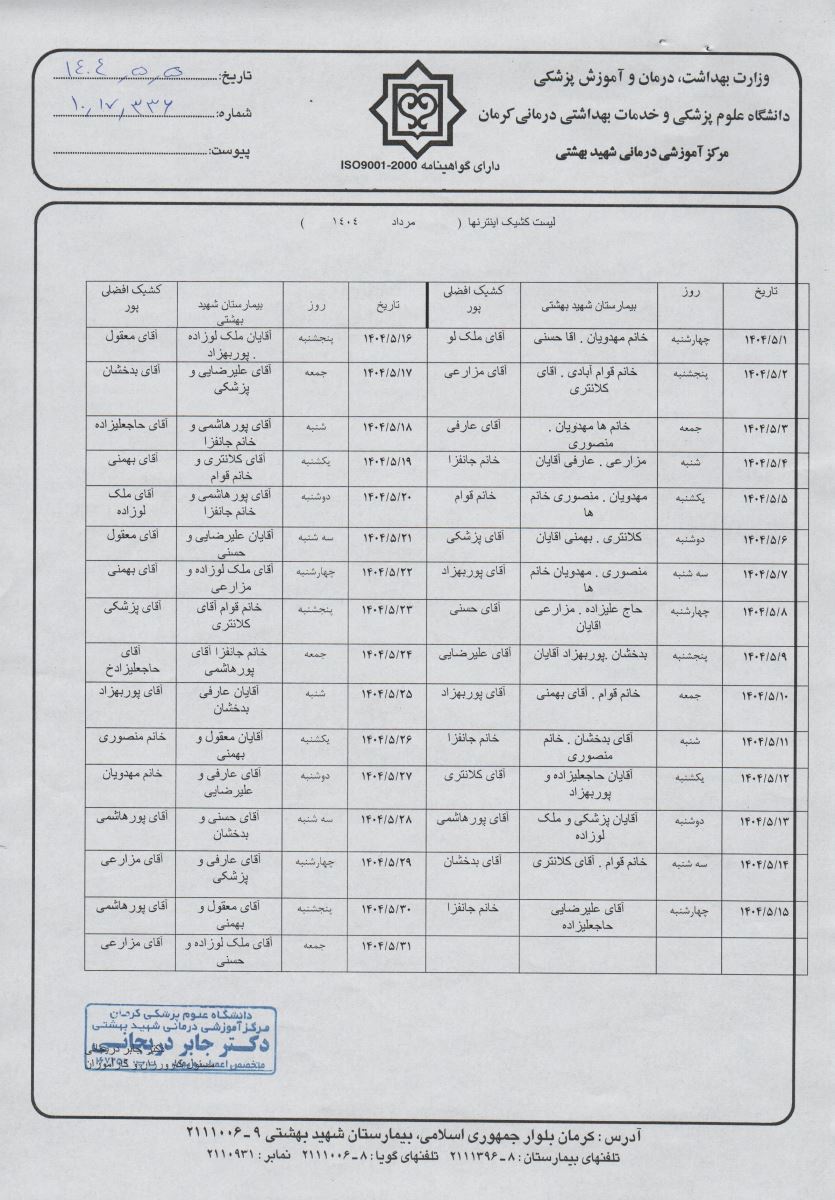 وزارت بهداشت، درمان و آموزش پزشکی
دانشگاه علوم پزشکی و خدمات بهداشتی درمانی کرمان
مرکز آموزشی درمانی شهید بهشتی
دارای گواهینامه ISO9001-2000
تاریخ: ۱۴۰۴,۵,۵
شماره: ۱۰,۱۷,۳۳۶
پیوست:
لیست کشیک اینترنها ( مرداد ۱٤۰٤ )
تاریخ روز بیمارستان شهید بهشتی کشیک افضلی پور تاریخ روز بیمارستان شهید بهشتی کشیک افضلی پور
۱۴۰۴/۵/۱ چهارشنبه خانم مهدویان . اقا حسنی آقای ملک لو ۱۴۰۴/۵/۱۶ پنجشنبه آقایان ملک لوزاده . پوربهزاد آقای معقول
۱۴۰۴/۵/۲ پنجشنبه خانم قوام آبادی . اقای کلانتری آقای مزارعی ۱۴۰۴/۵/۱۷ جمعه آقای علیرضایی و پزشکی آقای بدخشان
۱۴۰۴/۵/۳ جمعه خانم ها مهدویان . منصوری آقای عارفی ۱۴۰۴/۵/۱۸ شنبه آقای پورهاشمی و خانم جانفزا آقای حاجعلیزاده
۱۴۰۴/۵/۴ شنبه مزارعی . عارفی آقایان خانم جانفزا ۱۴۰۴/۵/۱۹ یکشنبه آقای کلانتری و خانم قوام آقای بهمنی
۱۴۰۴/۵/۵ یکشنبه مهدویان . منصوری خانم ها خانم قوام ۱۴۰۴/۵/۲۰ دوشنبه آقای پورهاشمی و خانم جانفزا آقای ملک لوزاده
۱۴۰۴/۵/۶ دوشنبه کلانتری . بهمنی اقایان آقای پزشکی ۱۴۰۴/۵/۲۱ سه شنبه آقایان علیرضایی و حسنی آقای معقول
۱۴۰۴/۵/۷ سه شنبه منصوری . مهدویان خانم ها آقای پوربهزاد ۱۴۰۴/۵/۲۲ چهارشنبه آقای ملک لوزاده و مزارعی آقای بهمنی
۱۴۰۴/۵/۸ چهارشنبه حاج علیزاده . مزارعی اقایان آقای حسنی ۱۴۰۴/۵/۲۳ پنجشنبه خانم قوام آقای کلانتری آقای پزشکی
۱۴۰۴/۵/۹ پنجشنبه بدخشان .پوربهزاد آقایان آقای علیرضایی ۱۴۰۴/۵/۲۴ جمعه خانم جانفزا آقای پورهاشمی آقای حاجعلیزادخ
۱۴۰۴/۵/۱۰ جمعه خانم قوام . آقای بهمنی آقای پوربهزاد ۱۴۰۴/۵/۲۵ شنبه آقایان عارفی بدخشان آقای پوربهزاد
۱۴۰۴/۵/۱۱ شنبه آقای بدخشان . خانم منصوری خانم جانفزا ۱۴۰۴/۵/۲۶ یکشنبه آقایان معقول و بهمنی خانم منصوری
۱۴۰۴/۵/۱۲ یکشنبه آقایان حاجعلیزاده و پوربهزاد آقای کلانتری ۱۴۰۴/۵/۲۷ دوشنبه آقای عارفی و علیرضایی خانم مهدویان
۱۴۰۴/۵/۱۳ دوشنبه آقایان پزشکی و ملک لوزاده آقای پورهاشمی ۱۴۰۴/۵/۲۸ سه شنبه آقای حسنی و بدخشان آقای پورهاشمی
۱۴۰۴/۵/۱۴ سه شنبه خانم قوام . آقای کلانتری آقای بدخشان ۱۴۰۴/۵/۲۹ چهارشنبه آقای عارفی و پزشکی آقای مزارعی
۱۴۰۴/۵/۱۵ چهارشنبه آقای علیرضایی حاجعلیزاده خانم جانفزا ۱۴۰۴/۵/۳۰ پنجشنبه آقای معقول و بهمنی آقای پورهاشمی
۱۴۰۴/۵/۳۱ جمعه آقای ملک لوزاده و حسنی آقای مزارعی
دانشگاه علوم پزشکی کرمان
مرکز آموزشی درمانی شهید بهشتی
دکتر جابر دریجانی
متخصص اعصاب
دکتر جابر دریجانی
مسئول کارورزان و کارآموزان
آدرس : کرمان بلوار جمهوری اسلامی، بیمارستان شهید بهشتی ۹ـ۲۱۱۱۰۰۶
تلفنهای بیمارستان : ۸ـ۲۱۱۱۳۹۶ تلفنهای گویا : ۸ـ۲۱۱۱۰۰۶ نمابر : ۲۱۱۰۹۳۱